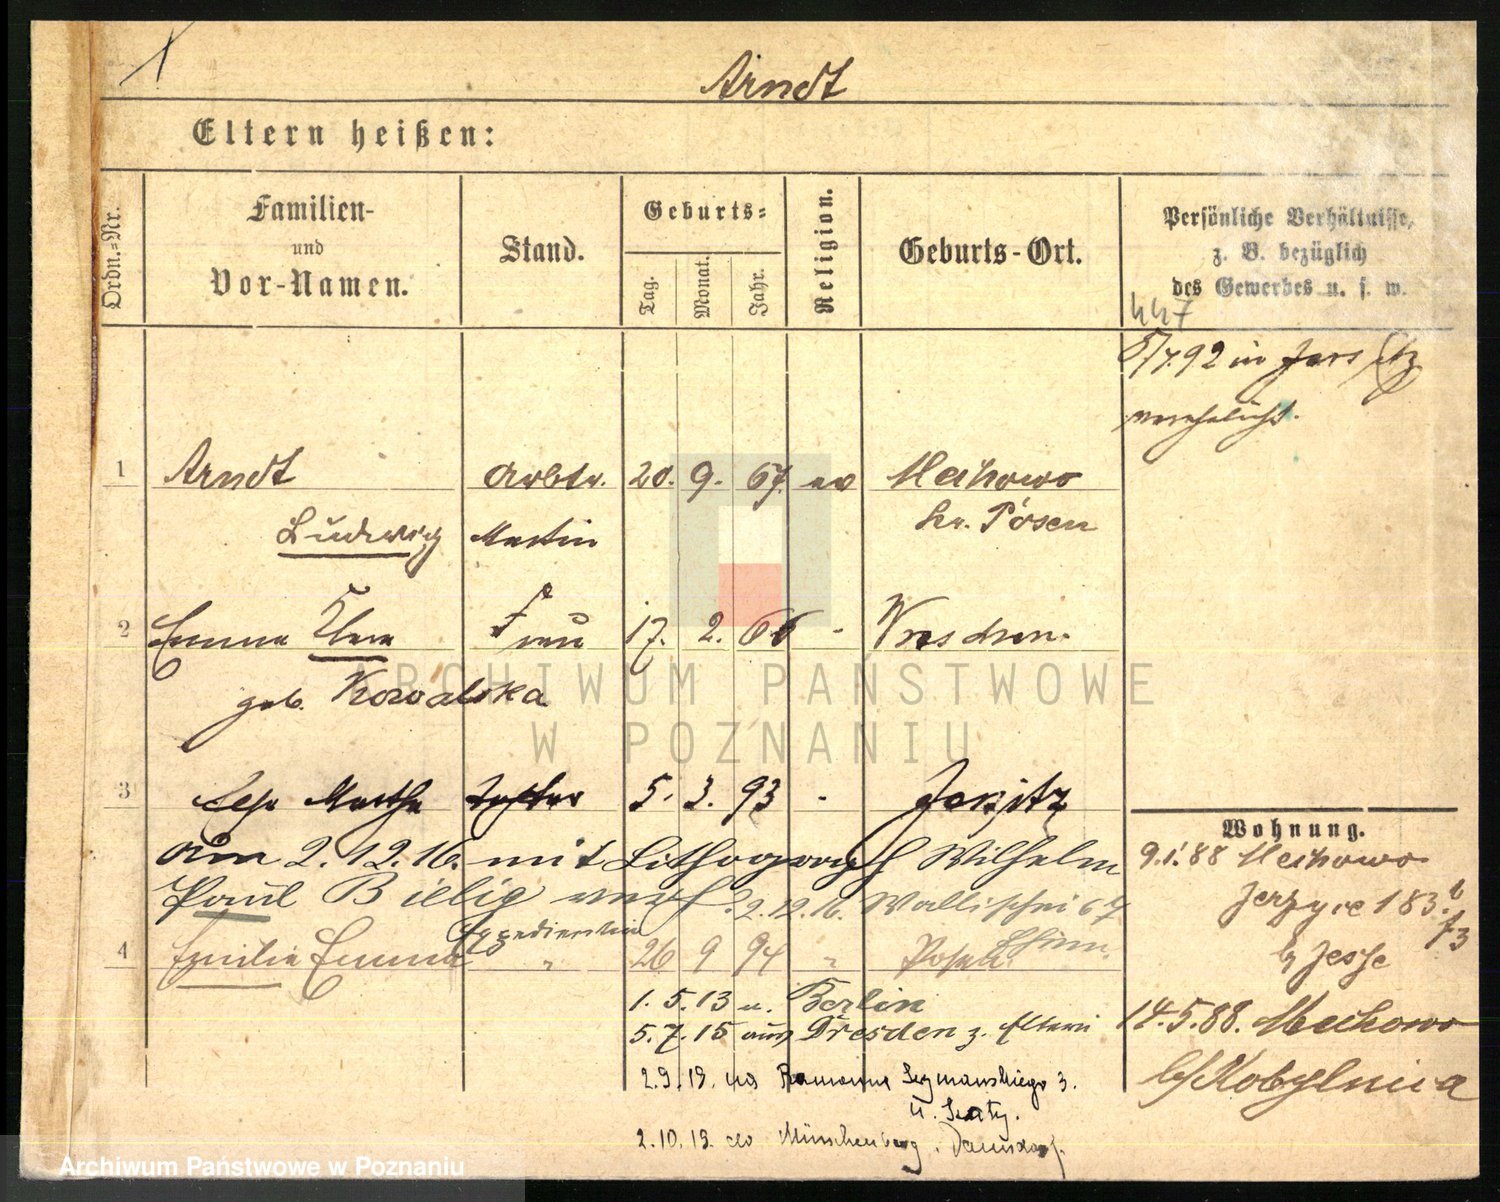 Arndt
Eltern heißen:
Ordn.-Nr.
Familien-
und
Vor-Namen.
Stand.
Geburts-
Tag.
Monat.
Jahr.
Religion.
Geburts-Ort.
Persönliche Verhältnisse,
z. B. bezüglich
des Gewerbes u. s. w.
447
5/7.92 in Jersitz
verehelicht.
1 Arndt Arbtr. 20. 9. 67. ev
Ludwig Martin
Kr. Posen
2 Emma Frau 17. 2. 66 - Wreschen.
geb. Kowalska
3 Martha Tochter 5. 3. 93 - Jersitz
am 2.12.16. mit Lithograph Wilhelm
Paul Billig verh. 2.12.16. Wallischei 67
Expedientin
4 Emilie Emma " 26 9 94 " Posen
1.5.13 n. Berlin
5.7.15 aus Dresden z. Eltern
2.9.19. na Szymanskiego 3.
2.10.19. do Müncheberg,
Wohnung.
9.1.88
Jerzyce 183.
b/ Jeske
14.5.88.
b/ Kobylnica
ARCHIWUM PAŃSTWOWE
W POZNANIU
Archiwum Państwowe w Poznaniu